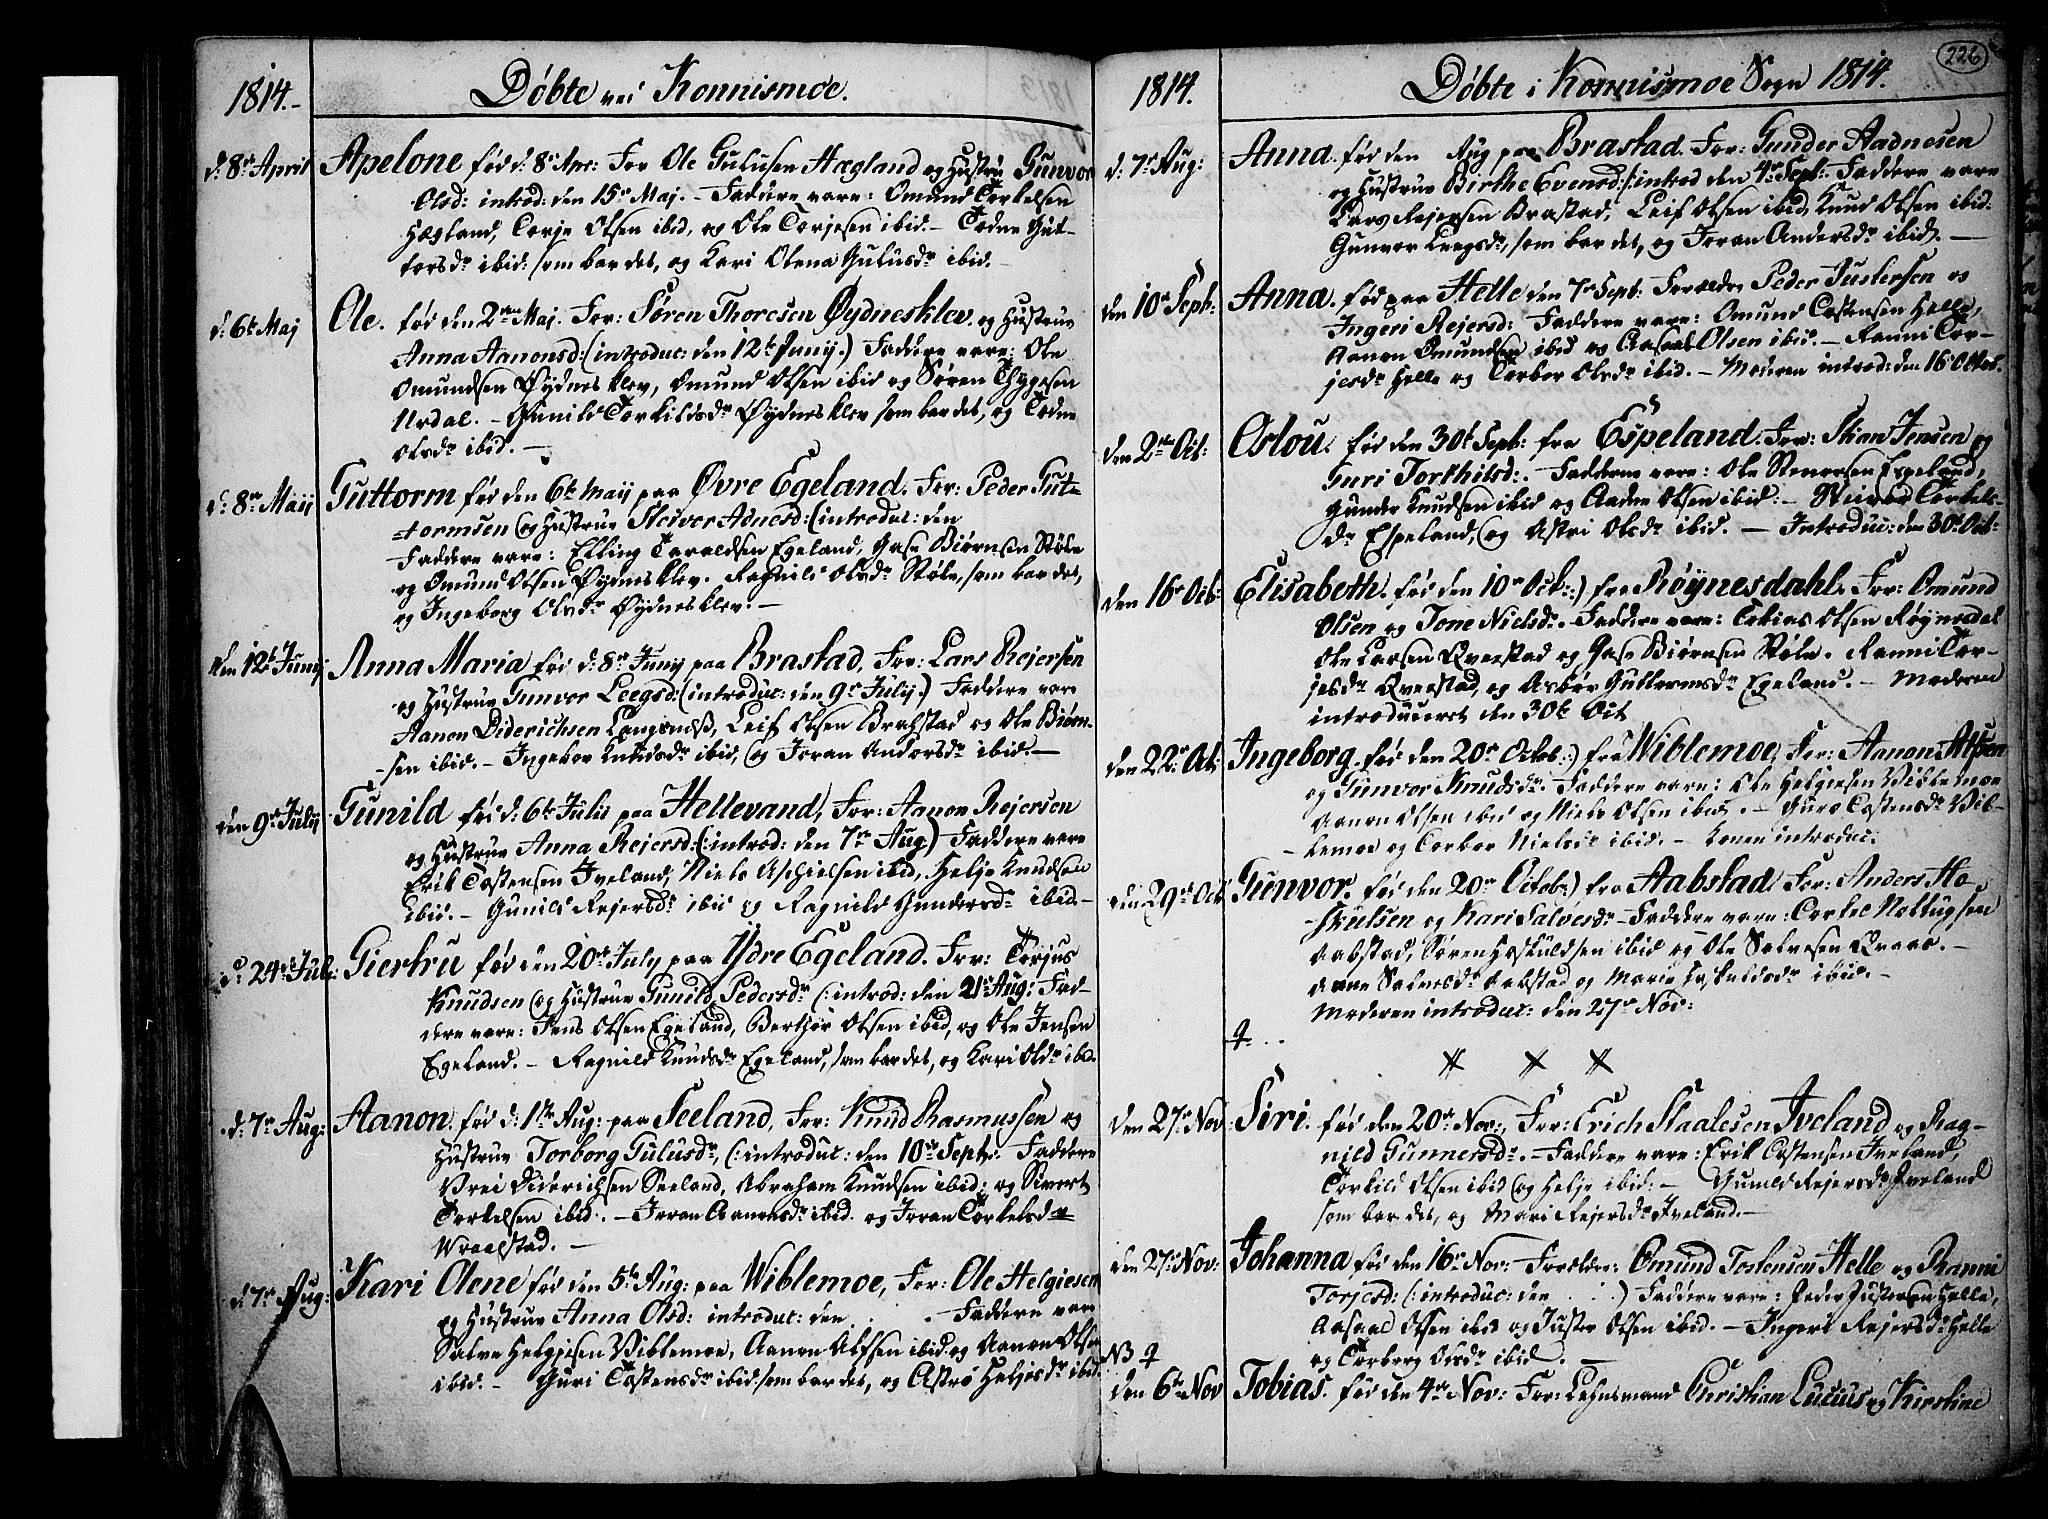 1814.-
Døbte ved Konnismoe.
d: 8de April
Apelone fød d: 8de Apr: For Ole Gulusen Hægland og Hustru Gunvor
Olsd: introd: den 15de Maj. - Faddere vare: Omund Torkelsen
Hægland, Torje Olsen ibid, og Ole Torjesen ibid. - Todne Gut-
torsdr ibid: som bar det, og Kari Olena Gulusdr ibid. -
d: 6te Maj
Ole. fød den 2den Maj. For: Søren Thoresen Øydnesklev og Hustrue
Anna Aanonsd: (introduc: den 12te Junij.) Faddere vare: Ole
Omundsen Øydnesklev, Omund Olsen ibid og Søren Thygesen
Urdal. - Gunild Torkildsdr Øydnesklev som bar det, og Todne
Olsdr ibid. -
d: 8de Maij
Guttorm fød den 6te Maij paa Øvre Egeland. For: Peder Gut=
=tormsen (og Hustrue Steivor Adnesd: (introduc: den
Faddere vare: Elling Taraldsen Egeland, Gase Biørnsen Støle
og Omund Olsen Øydnesklev. Ragnild Olsdr Støle, som bar det,
og Ingeborg Olsdr Øydnesklev. -
den 12te Junij
Anna Maria fød d: 8de Junij paa Brastad, For: Lars Rejersen
og Hustrue Gunvor Leegsd: (introduc: den 9de Julij.) Faddere vare
Aanon Diderichsen Langemyhr, Leif Olsen Brastad og Ole Biørn-
-sen ibid. - Ingebor Knudsdr ibid, (og Joran Andersdr ibid. -
den 9de Julij
Gunild fød d: 6te Julii paa Hellevand, For: Aanon Rejersen
og Hustrue Anna Rejersd: (:introd: den 7de Aug) Faddere vare
Erik Tostensen Iveland, Niels Aschielsen ibid, Helje Knudsen
ibid. - Gunild Rejersdr ibid og Ragnild Gundersdr ibid. -
d: 24de Jul:
Giertru fød den 20de July paa Ydre Egeland. For: Torjus
Knudsen (og Hustrue Gunild Pedersdr (:introd: den 21de Aug: Fad-
dere vare: Jens Olsen Egeland, Berthor Olsen ibid, og Ole Jensen
Egeland. - Ragnild Knudsdr Egeland, som bar det, og Kari Olsdr ibid.
d: 7de Aug:
Aanon. fød d: 1ste Aug: paa Seeland, For: Knud Rasmussen og
Hustrue Torborg Gulusdr, (:introduc: den 10de Sept. Faddere
Vrei Diderichsen Seeland, Abraham Knudsen ibid: og Sivert
Torkelsen ibid. - Joran Aanonsdr ibid. og Joran Torkelsdr
Wraalstad. -
d 7de Aug:
Kari Olene fød den 5te Aug: paa Wiblemoe, For: Ole Helgiesen
og Hustrue Anna Olsd: introduc: den . . . Faddere vare
Salve Helgiesen Viblemoe, Aanon Alfsen ibid og Aanon Olsen
ibid. - Guri Tostensdr ibid som bar det, og Astrø Heljesdr ibid.
226
1814.
Døbte i Konnismoe Sogn 1814.
d: 7de Aug:
Anna. fød den Aug paa Brastad. For: Gunder Aadnesen
og Hustrue Birthe Evensd: (:introd den 4de Sept: Faddere vare
Lars Rejersen Brastad, Leif Olsen ibid, Knud Olsen ibid.
Gunvor Leegsdr, som bar det, og Joran Andersdr ibid. -
den 10de Sept:
Anna. fød paa Helle den 7de Sept: Forældre Peder Justersen og
Ingeri Rejersd: Faddere vare: Omund Tostensen Helle,
Aanon Omundsen ibid og Aasaal Olsen ibid. - Ranni Tor-
jesdr Helle og Torbor Olsdr ibid. - Moderen introd: den 16 Octob.
den 2den Oct:
Oslou. fød den 30te Sept: fra Espeland. For: Stian Jensen og
Guri Torkhilsd:. Fadderne vare: Ole Stenersen Espeland,
Gunder Knudsen ibid og Aadne Olsen ibid: - Torkels-
dr Espeland, (og Astri Olsdr ibid. - Introduc: den 30te Oct:
den 16de Oct:
Elisabeth. fød den 10de Oct:) fra Røynesdahl. For: Omund
Olsen og Tone Nielsdr. - Faddere vare: Tobias Olsen Røynesdal
Ole Larsen Qverstad og Gase Biørnsen Støle. Ranni Tor-
jesdr Qverstad, og Asbør Guttormsdr Egeland. - Moderen
introduceret den 30te Oct
den 22de Oct:
Ingeborg. fød den 20de Octob:) fra Wiblemoe, For: Aanon Alfsen
og Gunvor Knudsdr. Faddere vare: Ole Helgiesen Viblemoe
Aanon Olsen ibid og Niels Olsen ibid. - Guro Tostensdr Vib-
-lemoe og Torbor Nielsdr ibid. - Konen introduc:
den 29de Oct
Gunvor. fød den 20de Octob:) fra Aabstad For: Anders Ho-
-skulsen og Kari Salvesdr - Faddere vare: Torkel Nottugsen
Aabstad, Søren Hoskuldsen ibid og Ole Salvesen Qvaae. -
Anne Salvesdr Aabstad og Marie Hoskuldsdr ibid. -
Moderen introduc: den 27de Nov:
den 27de Nov:
Siri. fød den 20de Nov:, For: Erich Staalesen Iveland og Rag-
nild Gunnersdr. - Faddere vare: Erik Tostensen Iveland,
Torkild Olsen ibid (og Helje ibid: - Gunild Rejersdr Iveland
som bar det, og Mari Rejersdr Iveland. -
den 27de Nov:
Johanna fød den 16de Nov: Forældre: Omund Tostensen Helle og Ranni
Torjesd: (:introduc: den . . .) Faddere vare: Peder Justersen Helle,
Aasaal Olsen ibid og Juster Olsen ibid. - Ingeri Rejersdr Helle
og Torborg Olsdr ibid. -
NB
den 6te Nov
Tobias. fød den 4de Nov: For: Lehnsmand Christian Lucius og Kirstine